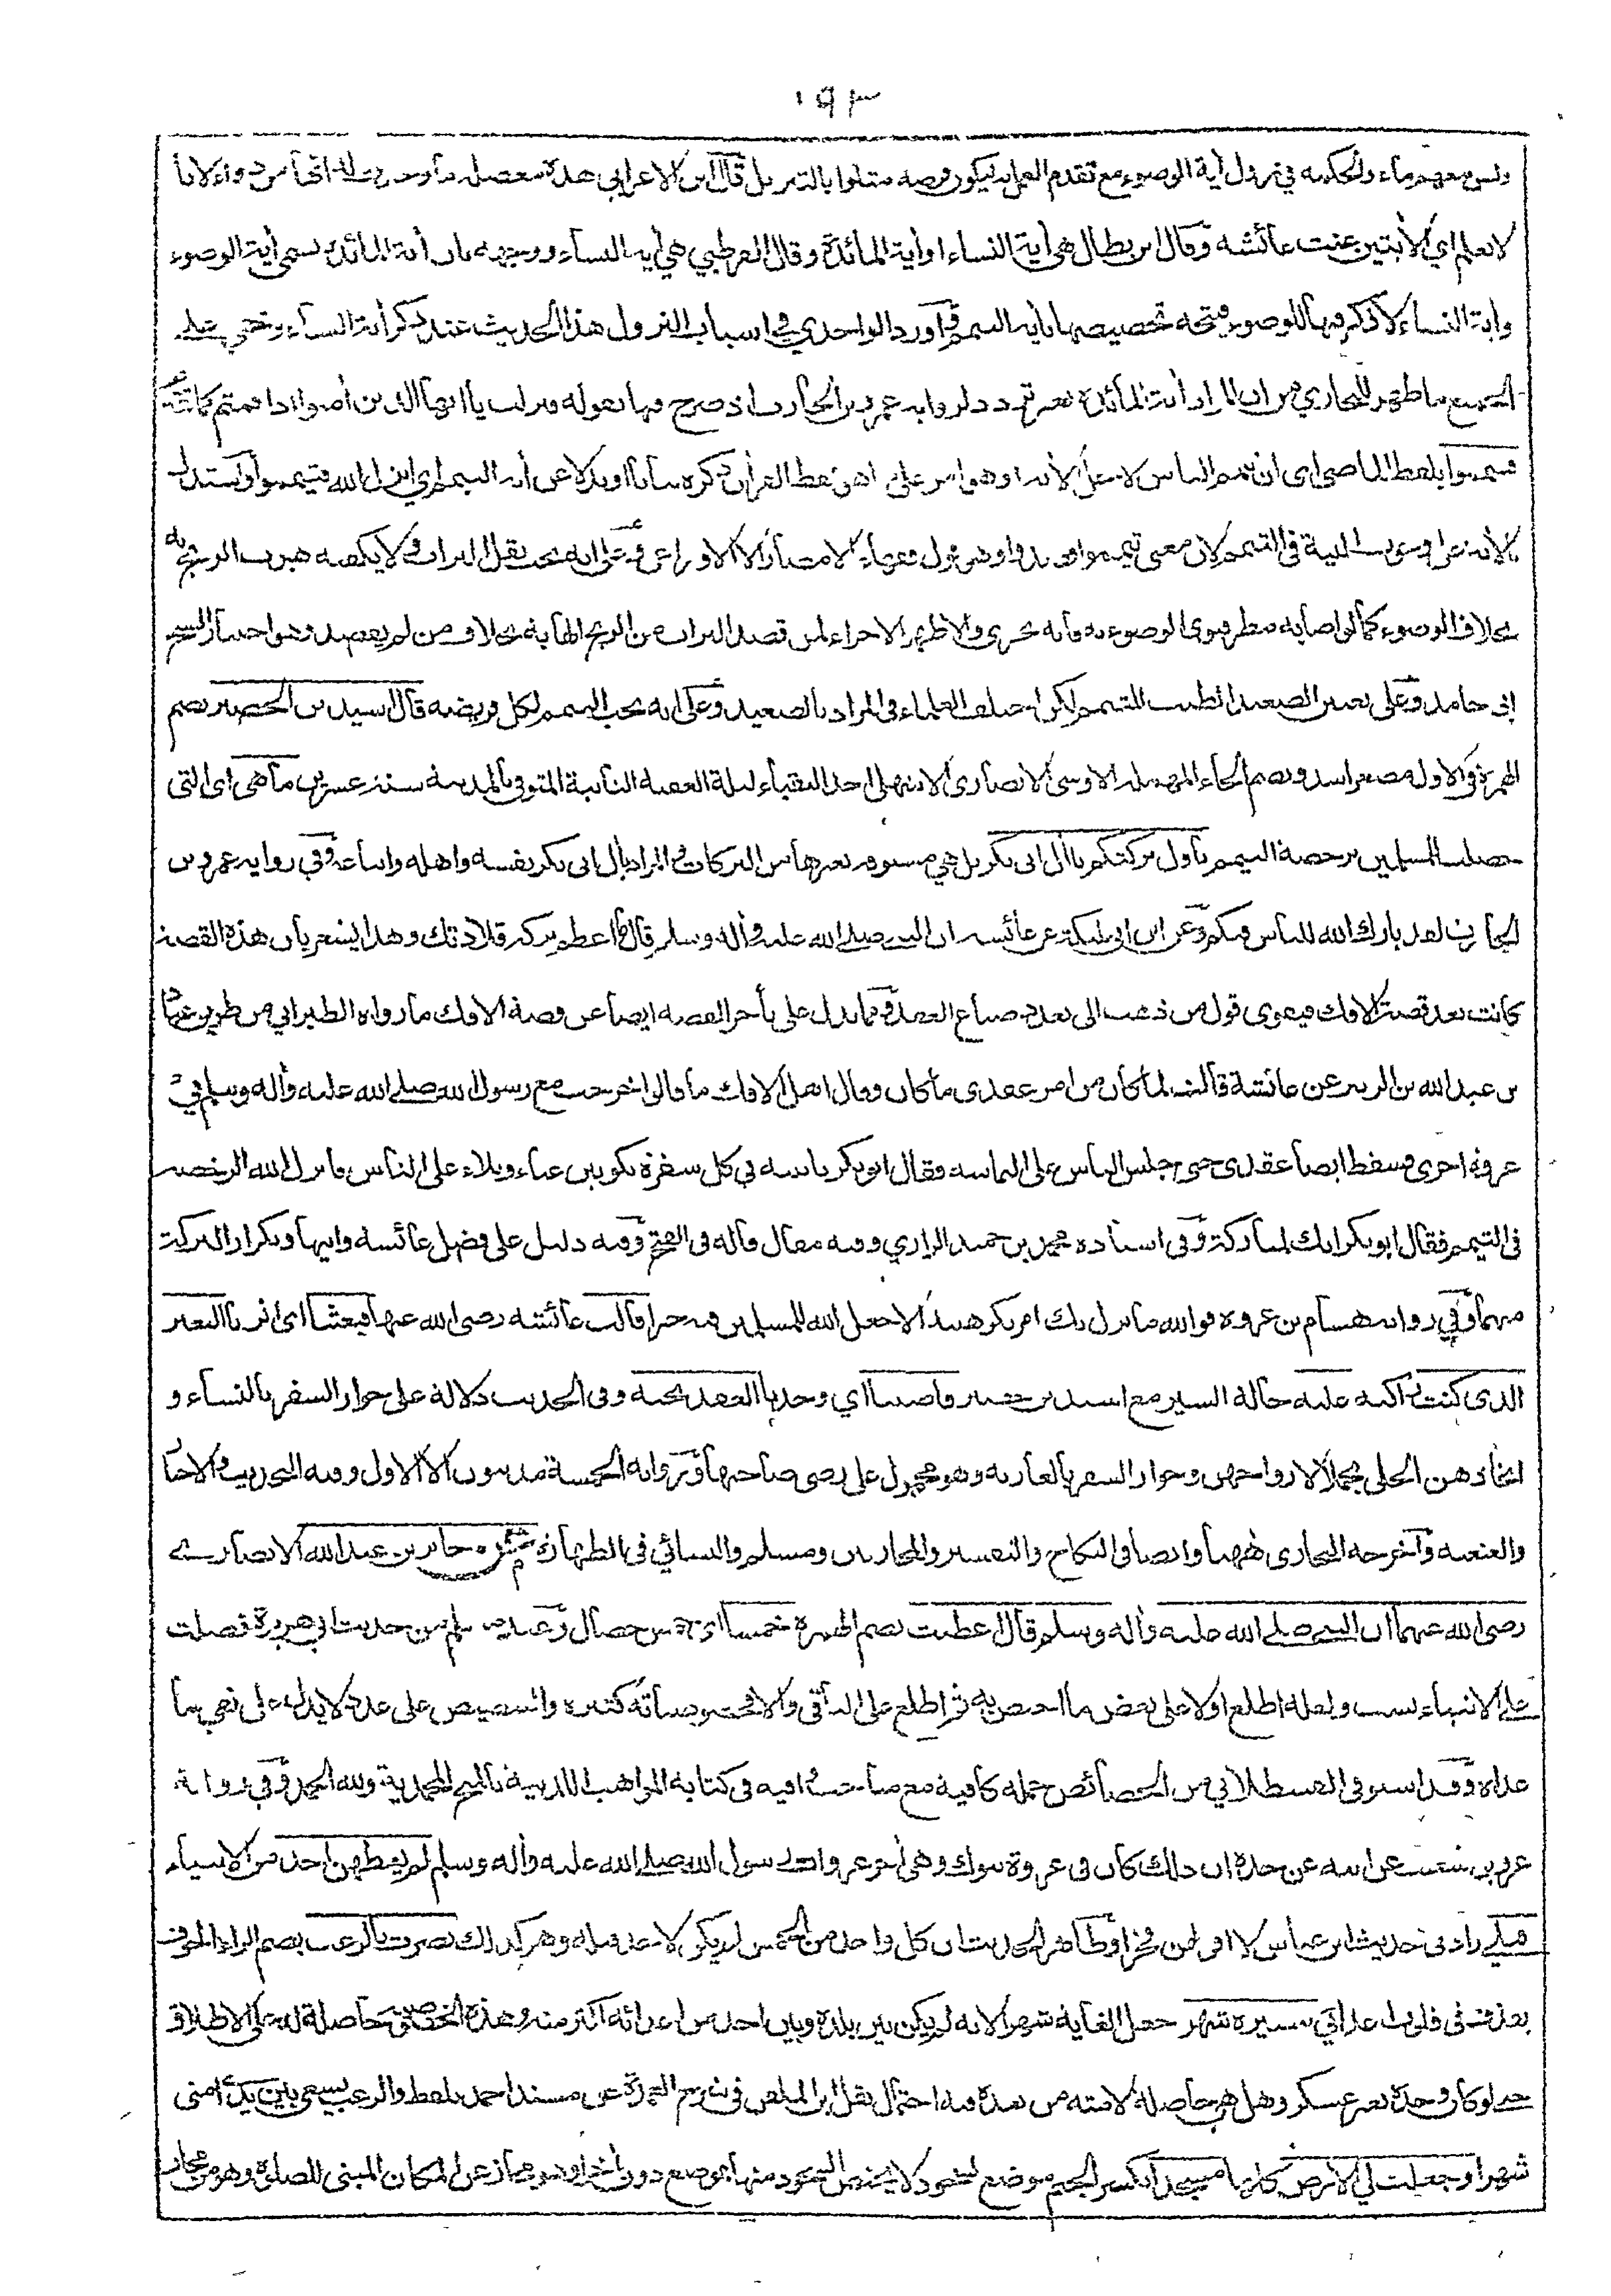 ١٩٣
وليس معهم ماء والحكمة في نزول آية الوضوء مع تقدم العمل به ليكون فرضه متلوا بالتنزيل قال ابن الاعرابي هذه معضلة ما وجدت لدائها من دواء لانا
لا نعلم اي الآيتين عنت عائشة وقال ابن بطال هي آية النساء او آية المائدة وقال القرطبي هي آية النساء ووجهه بان آية المائدة تسمى آية الوضوء
وآية النساء لا ذكر فيها للوضوء فيتجه تخصيصها بآية التيمم واورد الواحدي في اسباب النزول هذا الحديث عند ذكر آية النساء وخفي على
الجميع ما ظهر للبخاري من ان المراد آية المائدة بغير تردد لرواية عمرو بن الحارث اذ صرح فيها بقوله فنزلت يا ايها الذين آمنوا اذا قمتم
فتيمموا بلفظ الماضي اي تيمم الناس لاجل الآية او هو امر على ما هو لفظ القرآن ذكره بيانا او بدلا عن آية التيمم اي انزل الله فتيمموا واستدل
بالآية على وجوب النية في التيمم لان معنى تيمموا اقصدوا وهو قول فقهاء الامصار الا الاوزاعي وعلى انه يجب نقل التراب ولا يكفيه هبوب الريح به
بخلاف الوضوء كما لو اصابه مطر فنوى الوضوء به فانه يجزي والاظهر الاجزاء لمن قصد التراب من الريح الهابة بخلاف من لم يقصد وهو اختيار الشيخ
ابي حامد وعلى تعين الصعيد الطيب للتيمم لكن اختلف العلماء في المراد بالصعيد وعلى انه يجب التيمم لكل فريضة قال اسيد بن الحضير بضم
الهمزة في الاول مصغر اسد وبضم الحاء المهملة الاوسي الانصاري الاشهلي احد النقباء ليلة العقبة الثانية المتوفى بالمدينة سنة عشرين ما هي اي التي
حصلت للمسلمين برخصة التيمم باول بركتكم يا آل ابي بكر بل هي مسبوقة بغيرها من البركات والمراد بآل ابي بكر نفسه واهله واتباعه وفي رواية عمرو بن
الحارث لقد بارك الله للناس فيكم وعن ابن ابي مليكة عن عائشة ان النبي صلى الله عليه وآله وسلم قال ما اعظم بركة قلادتك وهذا يشعر بان هذه القصة
كانت بعد قصة الافك فيقوى قول من ذهب الى تعدد ضياع العقد ومما يدل على تأخر القصة ايضا عن قصة الافك ما رواه الطبراني من طريق عباد
بن عبد الله بن الزبير عن عائشة قالت لما كان من امر عقدي ما كان وقال اهل الافك ما قالوا خرجت مع رسول الله صلى الله عليه وآله وسلم في
غزوة اخرى فسقط ايضا عقدي حتى حبس الناس على التماسه فقال ابو بكر يا بنية في كل سفرة تكونين عناء وبلاء على الناس فانزل الله الرخصة
في التيمم فقال ابو بكر انك لمباركة وفي اسناده محمد بن حميد الرازي وفيه مقال قاله في الفتح وفيه دليل على فضل عائشة وابيها وتكرار البركة
منهما وفي رواية هشام بن عروة فوالله ما نزل بك امر تكرهينه الا جعل الله للمسلمين فيه خيرا قالت عائشة رضي الله عنها فبعثنا اي اثرنا البعير
الذي كنت راكبة عليه حالة السير مع اسيد بن حضير فاصبنا اي وجدنا العقد تحته وفي الحديث دلالة على جواز السفر بالنساء و
اتخاذهن الحلي تجملا لازواجهن وجواز السفر بالعارية وهو محمول على رضى صاحبها ورواته الخمسة مدنيون الا الاول وفيه التحديث والاخبار
والعنعنة واخرجه البخاري ههنا وايضا في النكاح والتفسير والمحاربين ومسلم والنسائي في الطهارة عن جابر بن عبد الله الانصاري
رضي الله عنهما ان النبي صلى الله عليه وآله وسلم قال اعطيت بضم الهمزة خمسا اي خمس خصال وعند مسلم من حديث ابي هريرة فضلت
على الانبياء بست ولعله اطلع اولا على بعض ما اختص به ثم اطلع على الباقي والا فخصوصياته كثيرة والتنصيص على عدد لا يدل على نفي ما
عداه وقد استوفى القسطلاني من الخصائص جملة كافية مع مباحث وافية في كتابه المواهب اللدنية بالمنح المحمدية ولله الحمد وفي رواية
عمرو بن شعيب عن ابيه عن جده ان ذلك كان في غزوة تبوك وهي آخر غزوات رسول الله صلى الله عليه وآله وسلم لم يعطهن احد من الانبياء
قبلي زاد في حديث ابن عباس لا اقولهن فخرا وظاهر الحديث ان كل واحد من الخمس لم يكن لاحد قبله وهو كذلك نصرت بالرعب بضم الراء الخوف
يقذف في قلوب اعدائي مسيرة شهر جعل الغاية شهرا لانه لم يكن بين بلده وبين احد من اعدائه اكثر منه وهذه الخصوصية حاصلة له على الاطلاق
حتى لو كان وحده بغير عسكر وهل هي حاصلة لامته من بعده فيه احتمال نقل ابن الملقن في شرح العمدة عن مسند احمد بلفظ والرعب يسعى بين يدي امتي
شهرا وجعلت لي الارض كلها مسجدا بكسر الجيم موضع سجود لا يختص السجود منها بموضع دون آخر او هو مجاز عن المكان المبني للصلوة وهو من مجاز